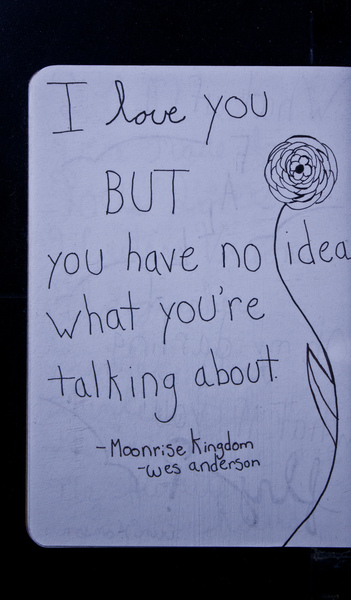 I love you
BUT
you have no idea
what you're
talking about.
-Moonrise Kingdom
-wes anderson